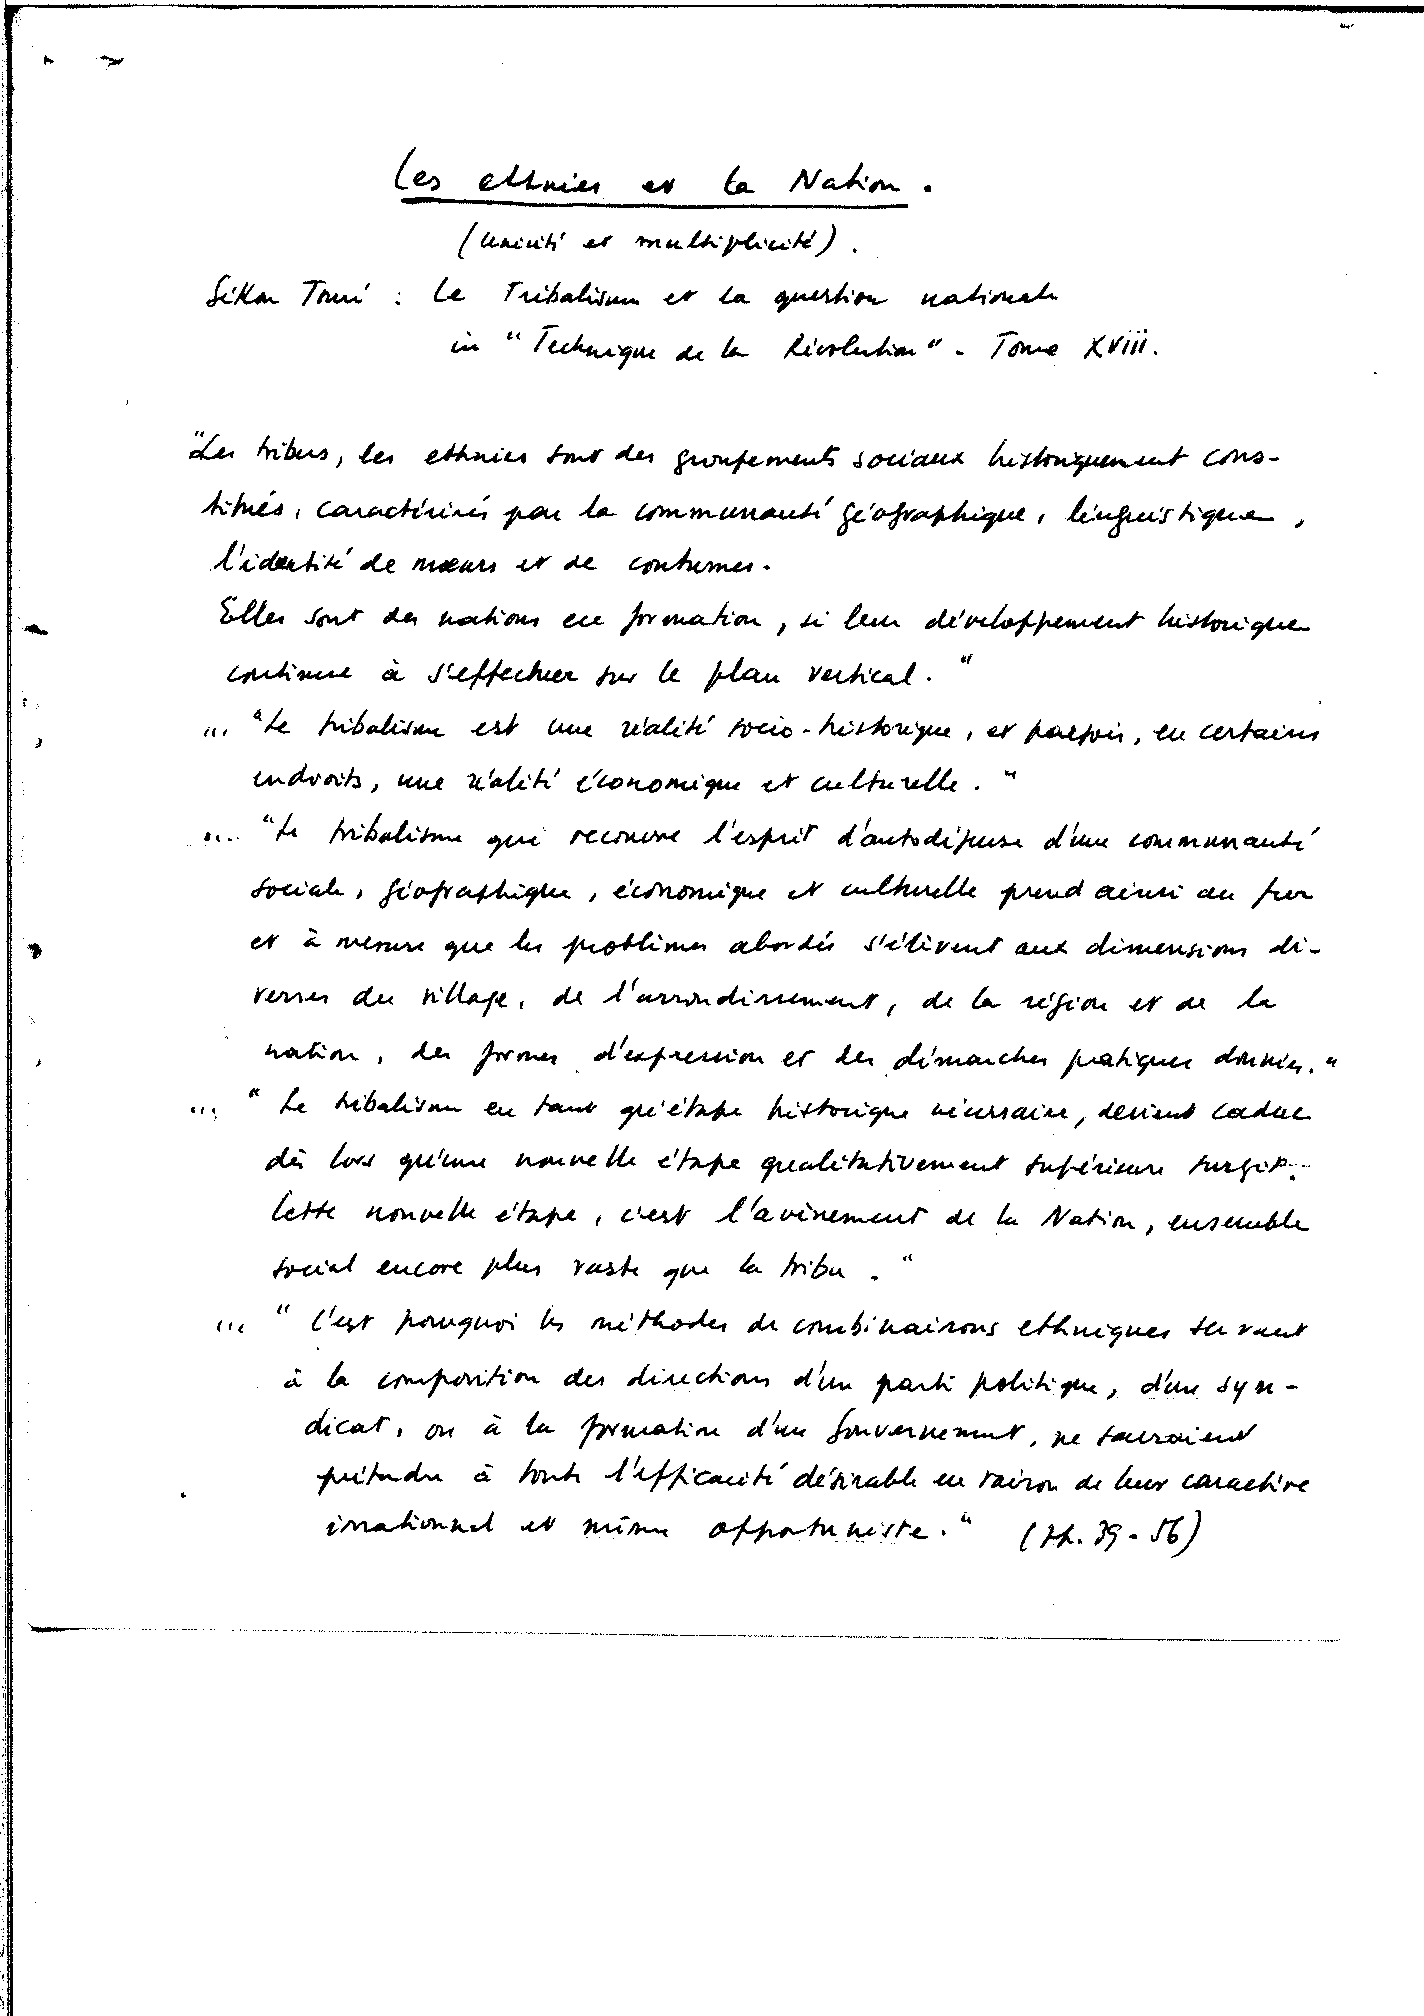 Les ethnies et la Nation.
(Unicité et multiplicité).
Sékou Touré : Le Tribalisme et la question nationale
in "Technique de la Révolution" - Tome XViii.
"Les tribus, les ethnies sont des groupements sociaux historiquement cons-
titués, caractérisés par la communauté géographique, linguistique,
l'identité de mœurs et de coutumes.
Elles sont des nations en formation, si leur développement historique
continue à s'effectuer sur le plan vertical."
... "Le tribalisme est une réalité socio-historique, et parfois, en certains
endroits, une réalité économique et culturelle."
... "Le tribalisme qui recouvre l'esprit d'autodéfense d'une communauté
sociale, géographique, économique et culturelle prend ainsi au fur
et à mesure que les problèmes abordés s'élèvent aux dimensions di-
verses du village, de l'arrondissement, de la région et de la
nation, des formes d'expression et des démarches pratiques données."
... "Le tribalisme en tant qu'étape historique nécessaire, devient caduc
dès lors qu'une nouvelle étape qualitativement supérieure surgit.
Cette nouvelle étape, c'est l'avènement de la Nation, ensemble
social encore plus vaste que la tribu."
... "C'est pourquoi les méthodes de combinaisons ethniques servant
à la composition des directions d'un parti politique, d'un syn-
dicat, ou à la formation d'un Gouvernement, ne sauraient
prétendre à toute l'efficacité désirable en raison de leur caractère
irrationnel et même opportuniste." (pp. 39-56)